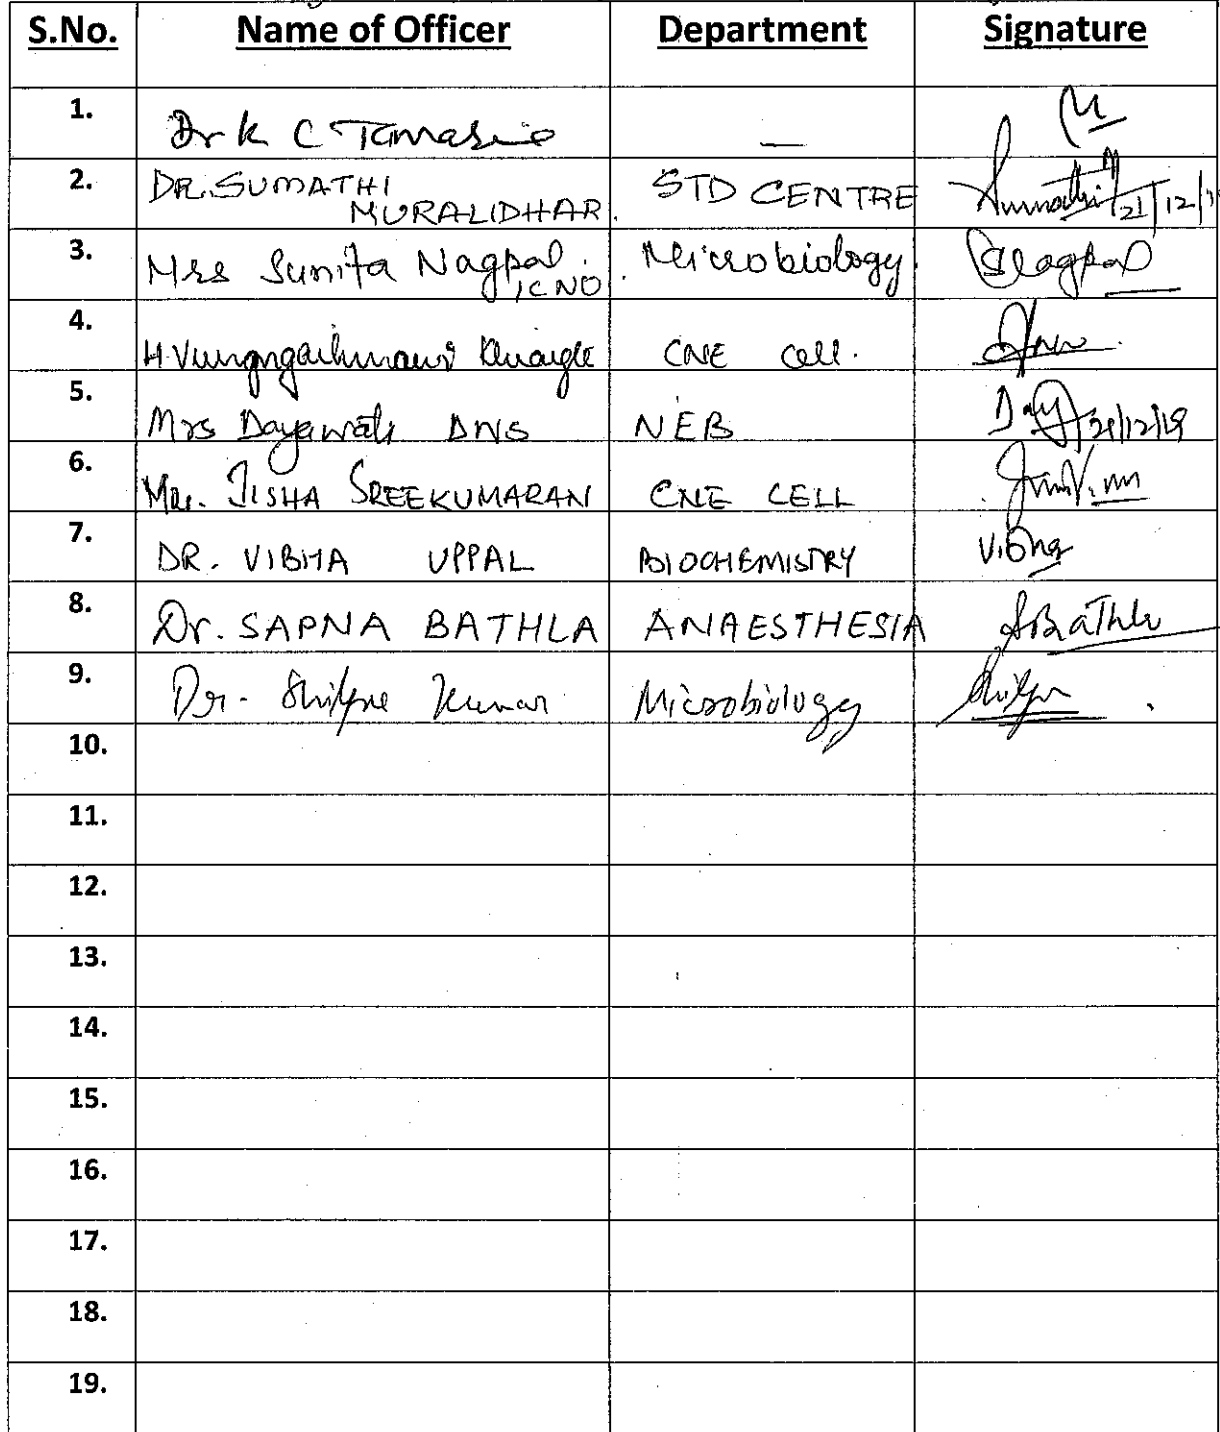 S.No. Name of Officer Department Signature
1. Dr K C Tamaria —
2. DR. SUMATHI STD CENTRE 21/12/
MURALIDHAR.
3. Mrs Sunita Nagpal Microbiology. SNagpal
ICNO
4. H. CNE Cell.
5. Mrs Dayawati DNS NEB Day 21/12/19
6. Mrs. JISHA SREEKUMARAN CNE CELL
7. DR. VIBHA UPPAL BIOCHEMISTRY Vibha
8. Dr. SAPNA BATHLA ANAESTHESIA SBathla
9. Dr. Shilpee Kumar Microbiology Shilpee
10.
11.
12.
13.
14.
15.
16.
17.
18.
19.